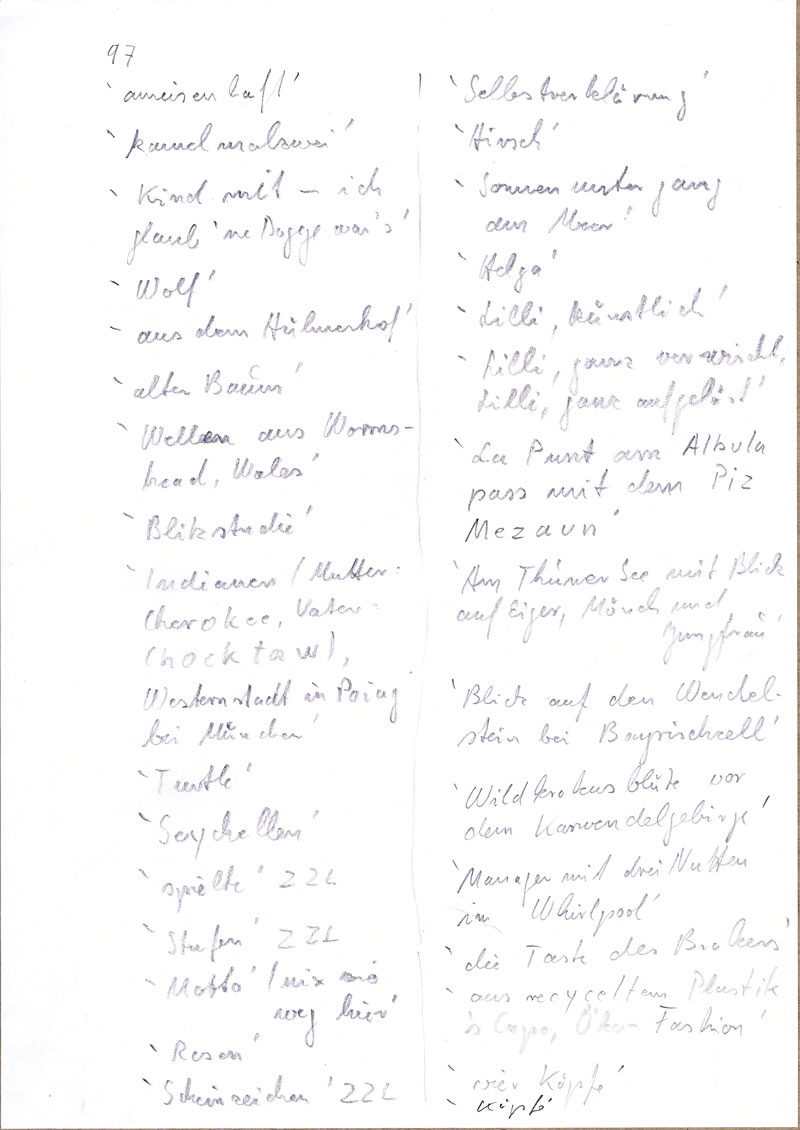 97
`ameisenhaft´
`kamelmalswei´
`Kind mit – ich
glaub 'ne Dogge war's´
`Wolf´
`aus dem Hühnerhof´
`alter Baum´
`Wellen aus Worms-
head, Wales´
`Blitzstudie´
`Indianer / Mutter:
Cherokee, Vater:
Chocktaw),
Westernstadt in Poing
bei München´
`Turtle´
`Seychellen´
`spielte´ ZZL
`Stufen´ ZZL
`Motto´ / nix wie
weg hier´
`Rosen´
`Scheinzeichen´ ZZL
`Selbstverklärung´
`Hirsch´
`Sonnenuntergang
am Meer´
`Helga´
`Lilli, künstlich´
`Lilli, ganz verwischt,
Lilli, ganz aufgelöst´
`La Punt am Albula
pass mit dem Piz
Mezaun´
`Am Thuner See mit Blick
auf Eiger, Mönch und
Jungfrau´
`Blick auf den Wendel-
stein bei Bayrischzell´
`Wildkrokusblüte vor
dem Karwendelgebirge´
`Manager mit drei Nutten
im Whirlpool´
`die Taste des Brokers´
`aus recyceltem Plastik
's Cape, Öko-Fashion´
`vier Köpfe´
`Köpfe´